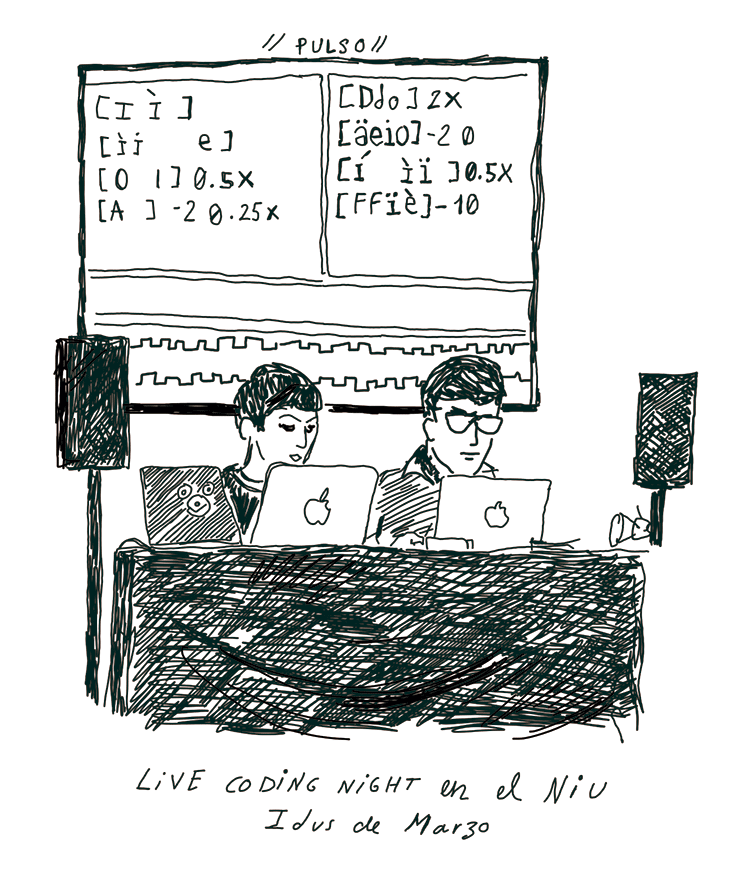 // PULSO //
[I Ì ]
[ìí e]
[O I] 0.5X
[A ] -2 0.25X
[Ddo] 2X
[äeio]-2 0
[í ìï ]0.5X
[FFïè]-10
LiVE CODING NiGHT en el NiU
Idus de Marzo